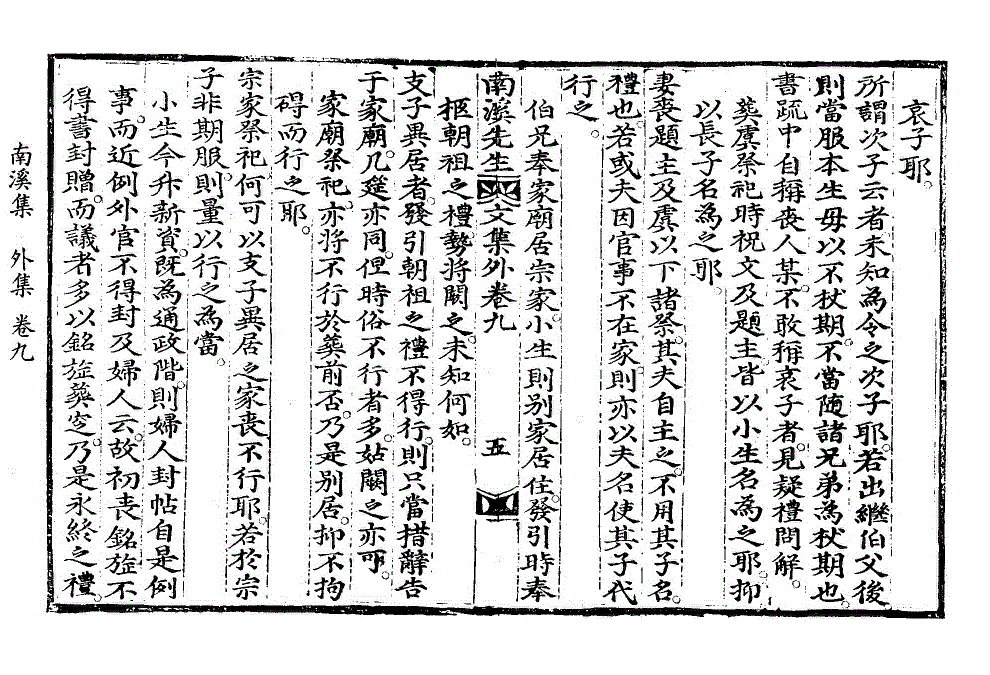 哀子耶。
所謂次子云者未知為今之次子耶。若出繼伯父後。
則當服本生母以不杖期。不當隨諸兄弟為杖期也。
書疏中自稱喪人某。不敢稱哀子者。見疑禮問解。
葬虞祭祀時祝文及題主。皆以小生名為之耶。抑
以長子名為之耶。
妻喪題主及虞以下諸祭。其夫自主之。不用其子名。
禮也。若或夫因官事不在家。則亦以夫名使其子代
行之。
伯兄奉家廟居宗家。小生則別家居住。發引時奉
南溪先生文集外卷九
五
柩朝祖之禮。勢將闕之。未知何如。
支子異居者。發引朝祖之禮不得行。則只當措辭告
于家廟。几筵亦同。但時俗不行者多。姑闕之亦可。
家廟祭祀。亦將不行於葬前否。乃是別居。抑不拘
碍而行之耶。
宗家祭祀。何可以支子異居之家喪不行耶。若於宗
子非期服。則量以行之為當。
小生今升新資。既為通政階。則婦人封帖自是例
事。而近例外官不得封及婦人云。故初喪銘旌不
得書封贈。而議者多以銘旌葬窆。乃是永終之禮。
南溪集 外集 卷九